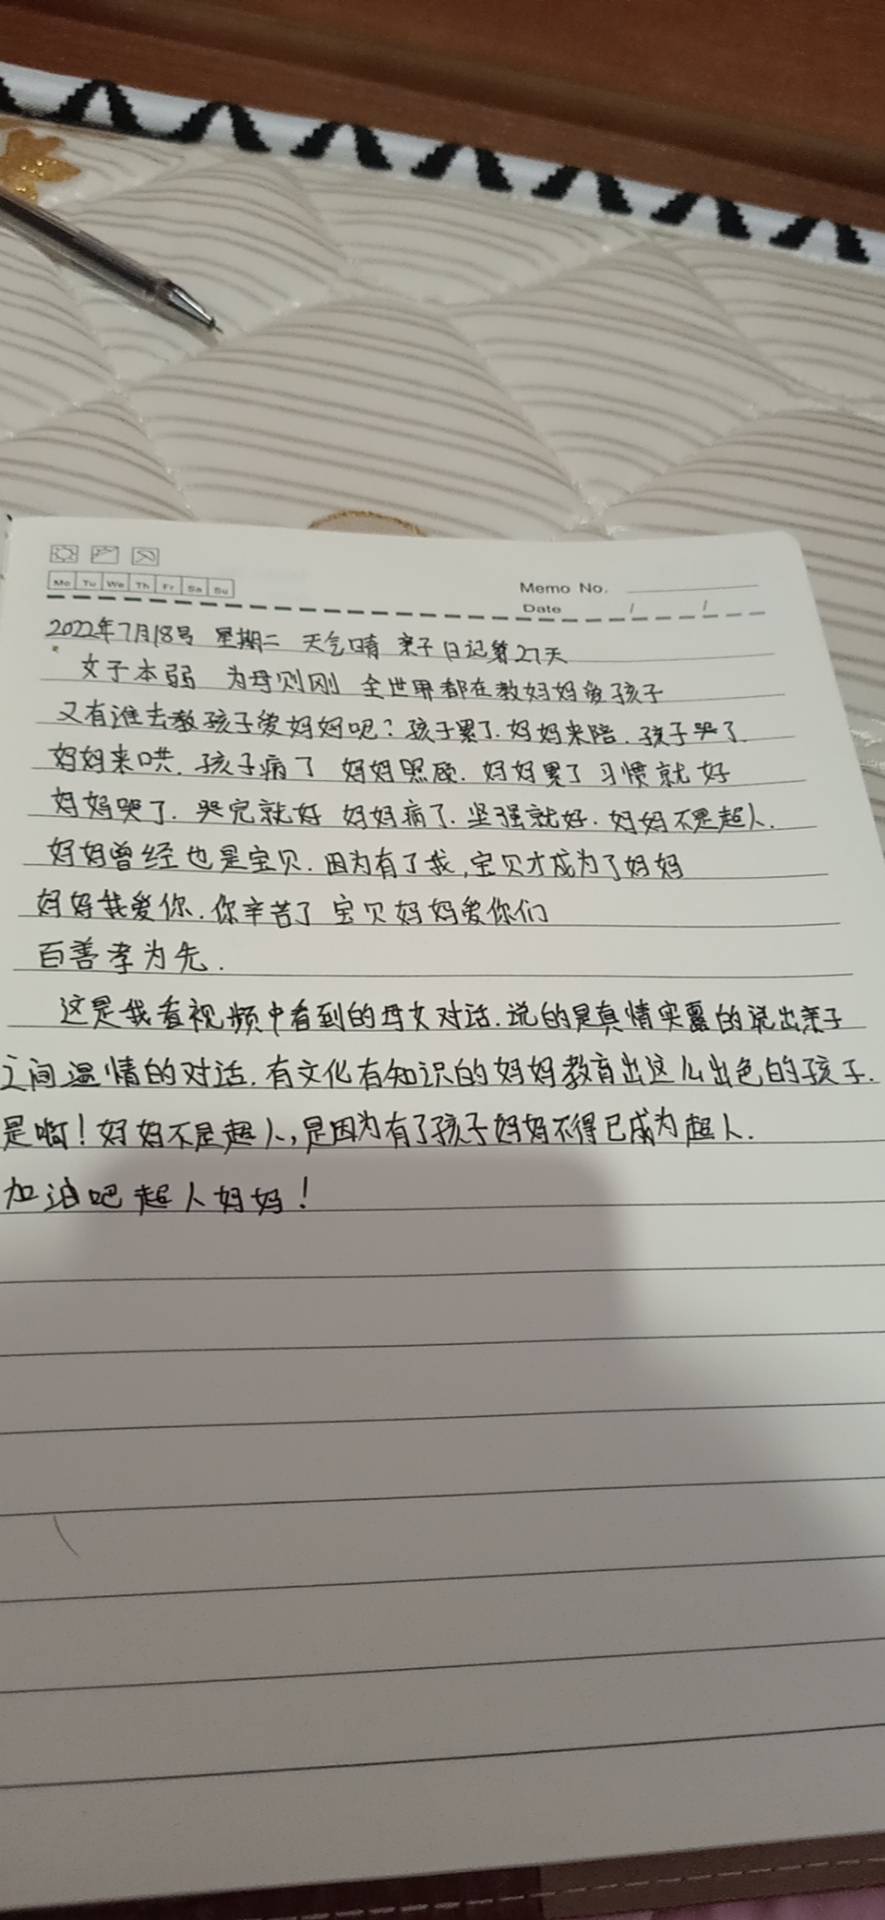 Mo Tu We Th Fr Sa Su
Memo No.
Date / /
2022年7月18号 星期二 天气晴 亲子日记第27天
女子本弱 为母则刚 全世界都在教妈妈爱孩子
又有谁去教孩子爱妈妈呢？孩子累了.妈妈来陪.孩子哭了.
妈妈来哄.孩子病了 妈妈照顾.妈妈累了 习惯就好
妈妈哭了.哭完就好 妈妈病了.坚强就好.妈妈不是超人.
妈妈曾经也是宝贝.因为有了我,宝贝才成为了妈妈
妈妈我爱你.你辛苦了 宝贝妈妈爱你们
百善孝为先.
这是我看视频中看到的母女对话.说的是真情实露的说出亲子
之间温情的对话.有文化有知识的妈妈教育出这么出色的孩子.
是啊！妈妈不是超人,是因为有了孩子妈妈不得已成为超人.
加油吧超人妈妈！